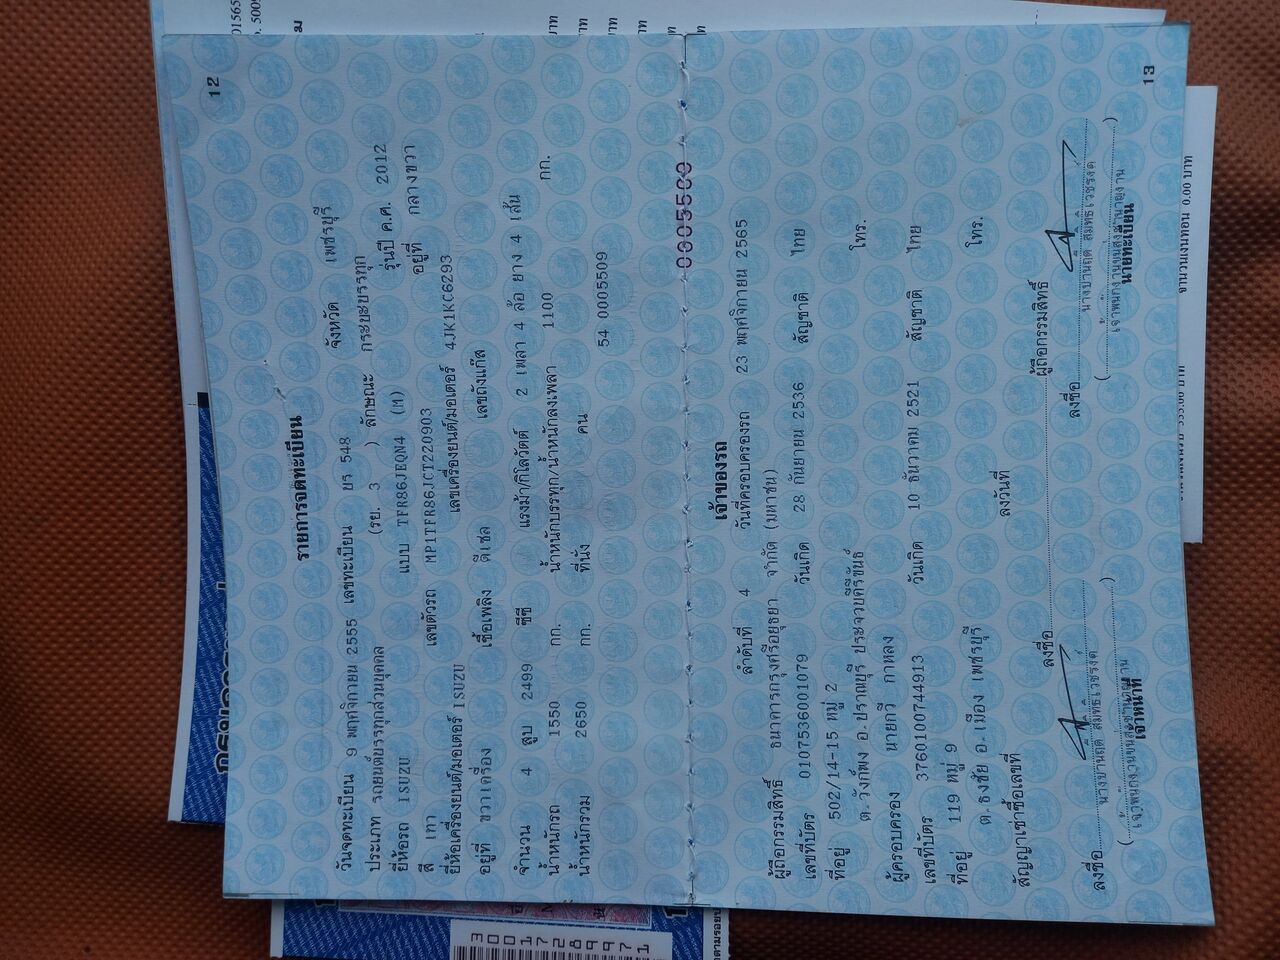 12
รายการจดทะเบียน
วันจดทะเบียน 9 พฤศจิกายน 2555 เลขทะเบียน บร 548 จังหวัด เพชรบุรี
ประเภท รถยนต์บรรทุกส่วนบุคคล (รย. 3 ) ลักษณะ กระบะบรรทุก
ยี่ห้อรถ ISUZU แบบ TFR86JEQN4 (M) รุ่นปี ค.ศ. 2012
สี เทา เลขตัวรถ MP1TFR86JCT220903 อยู่ที่ กลางขวา
ยี่ห้อเครื่องยนต์/มอเตอร์ ISUZU เลขเครื่องยนต์/มอเตอร์ 4JK1KC6293
อยู่ที่ ขวาเครื่อง เชื้อเพลิง ดีเซล เลขถังแก๊ส
จำนวน 4 สูบ 2499 ซีซี แรงม้า/กิโลวัตต์ 2 เพลา 4 ล้อ ยาง 4 เส้น
น้ำหนักรถ 1550 กก. น้ำหนักบรรทุก/น้ำหนักลงเพลา 1100 กก.
น้ำหนักรวม 2650 กก. ที่นั่ง คน
54 0005509
0005509
เจ้าของรถ
ลำดับที่ 4 วันที่ครอบครองรถ 23 พฤศจิกายน 2565
ผู้ถือกรรมสิทธิ์ ธนาคารกรุงศรีอยุธยา จำกัด (มหาชน)
เลขที่บัตร 0107536001079 วันเกิด 28 กันยายน 2536 สัญชาติ ไทย
ที่อยู่ 502/14-15 หมู่ 2 โทร.
ต.วังก์พง อ.ปราณบุรี ประจวบคีรีขันธ์
ผู้ครอบครอง นายกวี กาหลง
เลขที่บัตร 3760100744913 วันเกิด 10 ธันวาคม 2521 สัญชาติ ไทย
ที่อยู่ 119 หมู่ 9 โทร.
ต.ธงชัย อ.เมือง เพชรบุรี
สัญญาเช่าซื้อเลขที่ ลงวันที่
ลงชื่อ ผู้ถือกรรมสิทธิ์
ลงชื่อ ลงชื่อ
เจ้าหน้าที่ นายทะเบียน
13
จำนวนเงินทอน 0.00 บาท